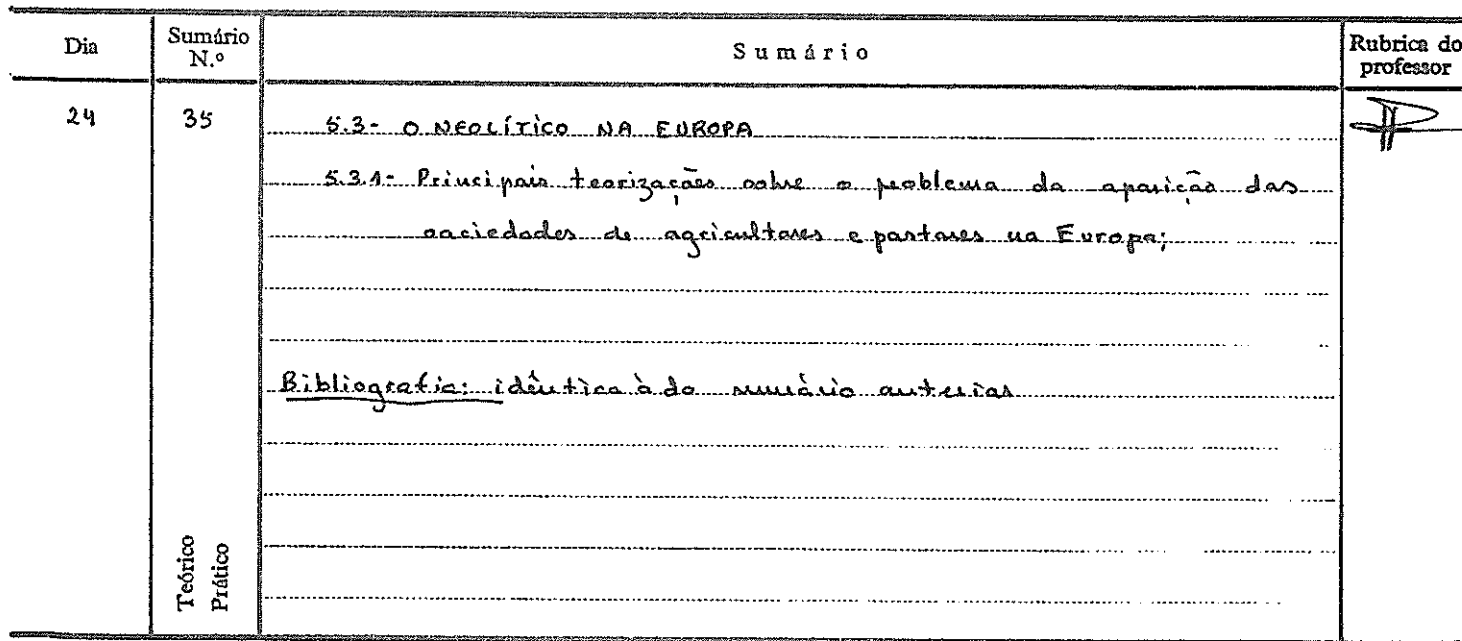 Dia
Sumário
N.º
Sumário
Rubrica do
professor
24
35
5.3- O NEOLÍTICO NA EUROPA
5.3.1- Principais teorizações sobre o problema da aparição das
sociedades de agricultores e pastores na Europa;
Bibliografia: idêntica à do sumário anterior
Teórico
Prático